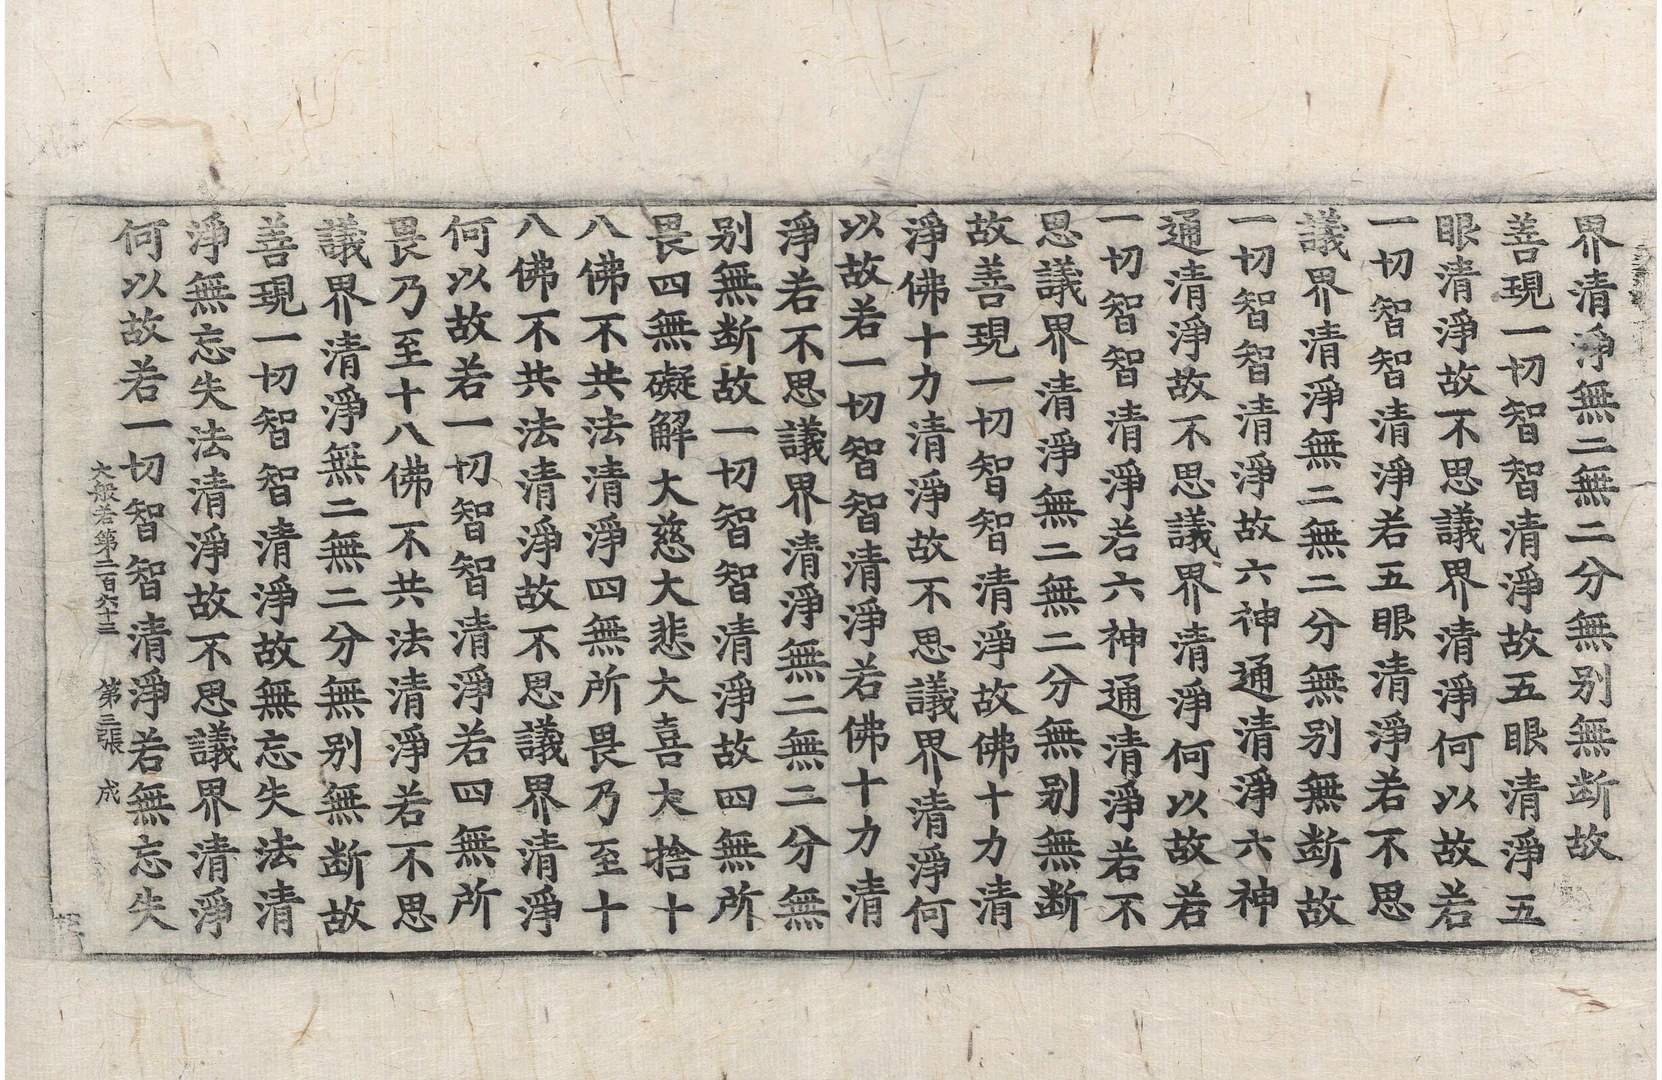 界清淨無二無二分無别無断故
善現一切智智清淨故五眼清淨五
眼清淨故不思議界清淨何以故若
一切智智清淨若五眼清淨若不思
議界清淨無二無二分無别無断故
一切智智清淨故六神通清淨六神
通清淨故不思議界清淨何以故若
一切智智清淨若六神通清淨若不
思議界清淨無二無二分無别無断
故善現一切智智清淨故佛十力清
淨佛十力清淨故不思議界清淨何
以故若一切智智清淨若佛十力清
淨若不思議界清淨無二無二分無
别無断故一切智智清淨故四無所
畏四無礙解大慈大悲大喜大捨十
八佛不共法清淨四無所畏乃至十
八佛不共法清淨故不思議界清淨
何以故若一切智智清淨若四無所
畏乃至十八佛不共法清淨若不思
議界清淨無二無二分無别無断故
善現一切智智清淨故無忘失法清
淨無忘失法清淨故不思議界清淨
何以故若一切智智清淨若無忘失
大般若第二百六十三 第三張 成